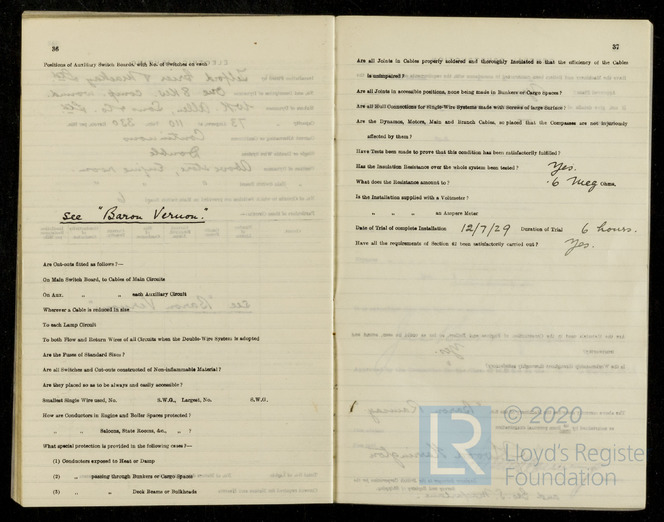 36
Positions of Auxiliary Switch Boards, with No. of Switches on each
see "Baron Vernon."
Are Cut-outs fitted as follows?—
On Main Switch Board, to Cables of Main Circuits
On Aux. „ „ each Auxiliary Circuit
Wherever a Cable is reduced in size
To each Lamp Circuit
To both Flow and Return Wires of all Circuits when the Double-Wire System is adopted
Are the Fuses of Standard Sizes?
Are all Switches and Cut-outs constructed of Non-inflammable Material?
Are they placed so as to be always and easily accessible?
Smallest Single Wire used, No. S.W.G., Largest, No. S.W.G.
How are Conductors in Engine and Boiler Spaces protected?
„ „ Saloons, State Rooms, &c., „ ?
What special protection is provided in the following cases?—
(1) Conductors exposed to Heat or Damp
(2) „ passing through Bunkers or Cargo Spaces
(3) „ „ Deck Beams or Bulkheads
37
Are all Joints in Cables properly soldered and thoroughly insulated so that the efficiency of the Cables
is unimpaired?
Are all Joints in accessible positions, none being made in Bunkers or Cargo Spaces?
Are all Hull Connections for Single-Wire Systems made with Screws of large Surface?
Are the Dynamos, Motors, Main and Branch Cables, so placed that the Compasses are not injuriously
affected by them?
Have Tests been made to prove that this condition has been satisfactorily fulfilled?
Has the Insulation Resistance over the whole system been tested? Yes.
What does the Resistance amount to? ·6 Meg Ohms.
Is the Installation supplied with a Voltmeter?
„ „ „ an Ampere Meter
Date of Trial of complete Installation 12/7/29 Duration of Trial 6 hours.
Have all the requirements of Section 42 been satisfactorily carried out? Yes.
© 2020
LR
Lloyd's Register
Foundation